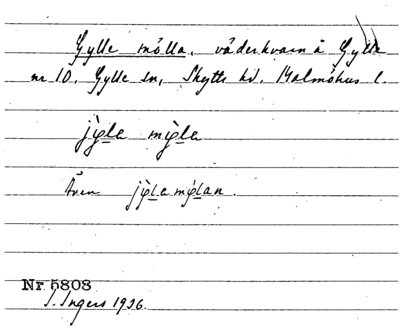 Gylle mölla, väderkvarn å Gylle
nr 10, Gylle sn, Skytts hd, Malmöhus l.
jỳle mỳ̀le
Även jỳlemỳlan.
Nr 5808
I. Ingers 1926.